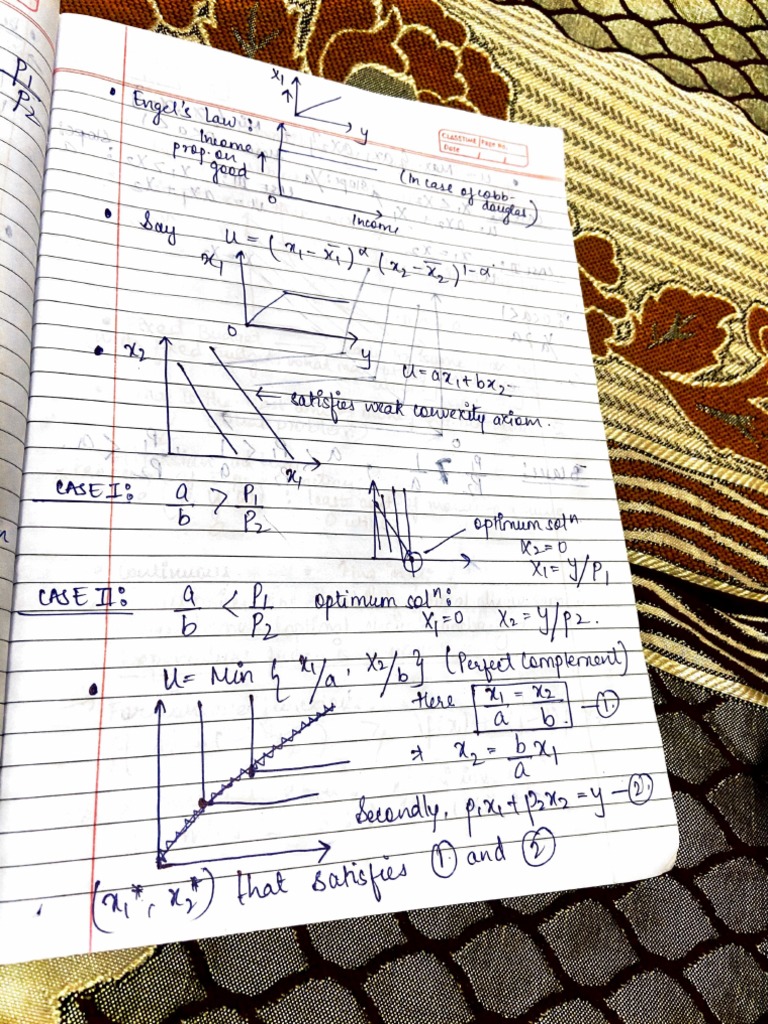 P1
P2
x1
y
• Engel's Law:
CLASSTIME Page No.
Date / /
Income
prop. on
good
(In case of cobb-
douglas)
0
Income
• Say U = (x1 - x̄1)^α (x2 - x̄2)^1-α
x1
0
y
• x2
U = ax1 + bx2
← satisfies weak convexity axiom.
x1
CASE I: a/b > P1/P2
optimum solⁿ
x2 = 0
x1 = y/P1
CASE II: a/b < P1/P2 optimum solⁿ:
x1 = 0 x2 = y/p2.
• U = Min { x1/a, x2/b } (Perfect Complement)
Here x1/a = x2/b. — ①
⇒ x2 = b/a x1
Secondly, p1x1 + p2x2 = y — ②
(x1*, x2*) that satisfies ① and ②